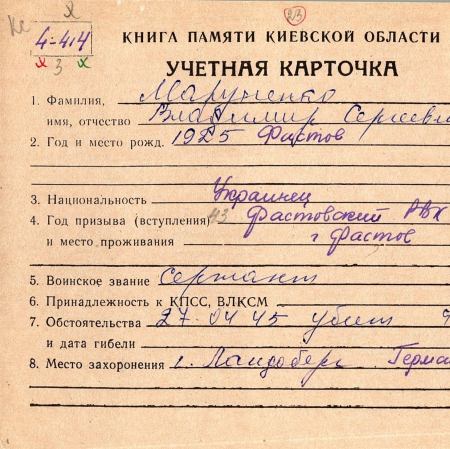 Ке х 213
4-414
х 3 х
КНИГА ПАМЯТИ КИЕВСКОЙ ОБЛАСТИ
УЧЕТНАЯ КАРТОЧКА
1. Фамилия, Маруненко
имя, отчество Владимир Сергееви
2. Год и место рожд. 1925 Фастов
3. Национальность Украинец
4. Год призыва (вступления) 43 Фастовский РВК
и место проживания г Фастов
5. Воинское звание Сержант
6. Принадлежность к КПСС, ВЛКСМ
7. Обстоятельства 27.04 45 убит
и дата гибели
8. Место захоронения г. Ландсберг Герма